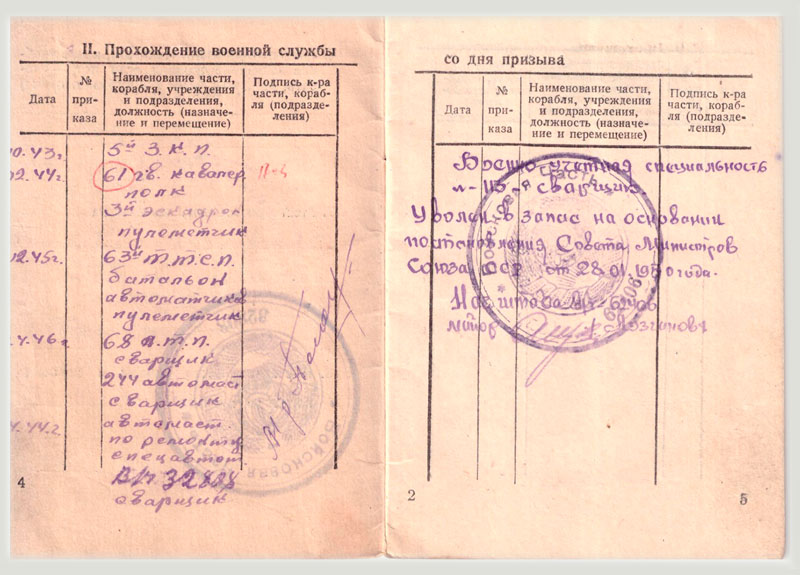 II. Прохождение военной службы
Дата
№ при- каза
Наименование части,
корабля, учреждения
и подразделения,
должность (назначе-
ние и перемещение)
Подпись к-ра
части, кораб-
ля (подразде-
ления)
0.43г.
5й З.К.П.
02.44г.
61 гв. кавалер.
полк
3й эскадрон
пулеметчик
02.45г.
63й
батальон
автоматчиков
пулеметчик
4.46г.
сварщик
244 автомаст
сварщик
4.44.г.
автомаст.
по ремонту
спецавтот
сварщик
Войсковая
4
со дня призыва
Дата
№ при- каза
Наименование части,
корабля, учреждения
и подразделения,
должность (назначе-
ние и перемещение)
Подпись к-ра
части, кораб-
ля (подразде-
ления)
Военно-учетная специальность
№-113-сварщик.
Уволен в запас на основании
постановления Совета Министров
Союза ССР от 28.01.1950 года.
майор
Войсковая часть
2
5